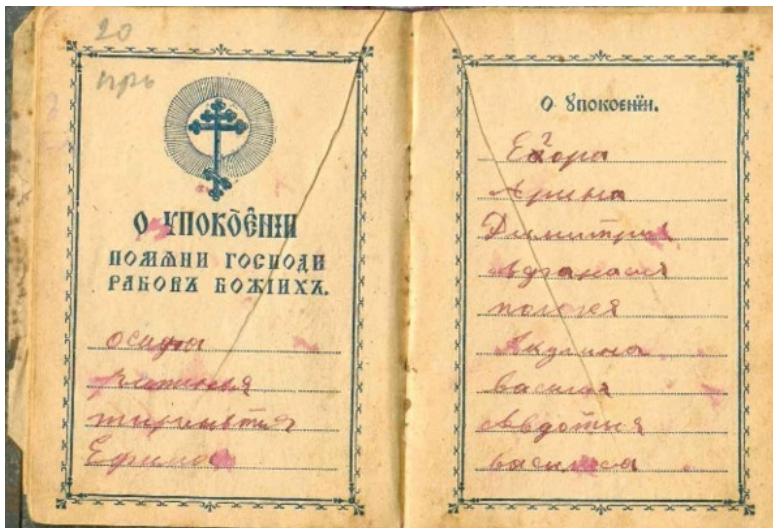 20
О УПОКОЕНІИ
ПОМѦНИ ГОСПОДИ
РАБОВЪ БОЖІИХЪ.
осипа
терентия
Ефима
О Упокоеніи.
Егора
Арина
Димитрия
Афганасия
пологея
Акулина
василия
Авдотья
василиса